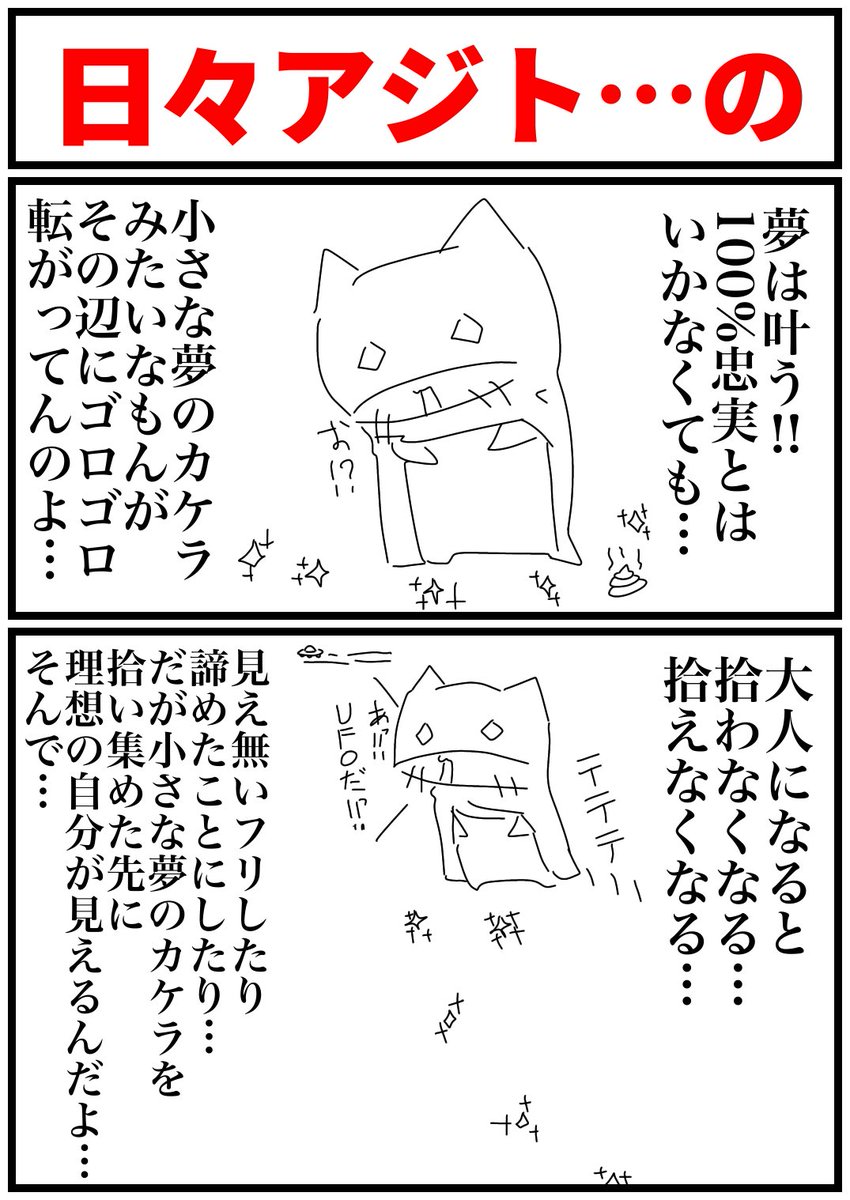 日々アジト…の
夢は叶う!!
100%忠実とは
いかなくても…
お!?
小さな夢のカケラ
みたいなもんが
その辺にゴロゴロ
転がってんのよ…
大人になると
拾わなくなる…
拾えなくなる…
テテテテ
あっ!!
UFOだ!?
見え無いフリしたり
諦めたことにしたり…
だが小さな夢のカケラを
拾い集めた先に
理想の自分が見えるんだよ…
そんで…